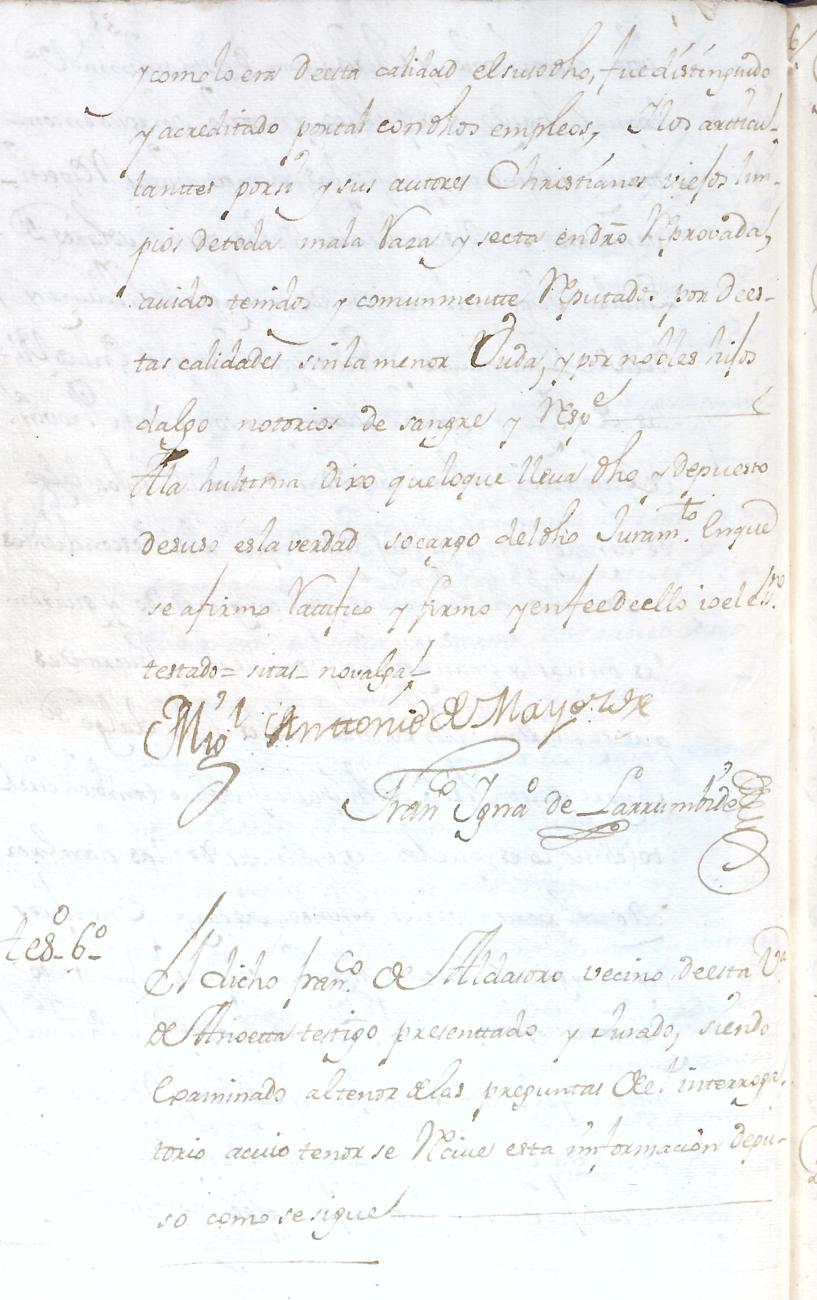 y como lo era de esta calidad el susodho, fue distinguido
y acreditado por tal con dhos empleos, Y los articu-
lanttes por si y sus autores Christianos viejos lim-
pios de toda mala Raza y secta en dro Reprovada,
avidos tenidos y comunmentte Reputados por de es-
tas calidades sin la menor Duda, y por nobles hijos
dalgo notorios de sangre y Respe
A la hultima dixo que lo que lleva dho y depuesto
de suso es la verdad so cargo del dho Juramto. En que
se afirmo Ratifico y firmo y en fee de ello io el essno.
testado = sitas _ no valga
Migl Anttonio de Mayoz
Franco Ignao de Larrumbide
tesº 6º
El dicho franco de Aldasoro vecino de esta Va
de Anoetta testigo presenttado y Jurado, siendo
Examinado al tenor de las preguntas del interroga-
torio a cuio tenor se Recive esta informacion depu-
so como se sigue